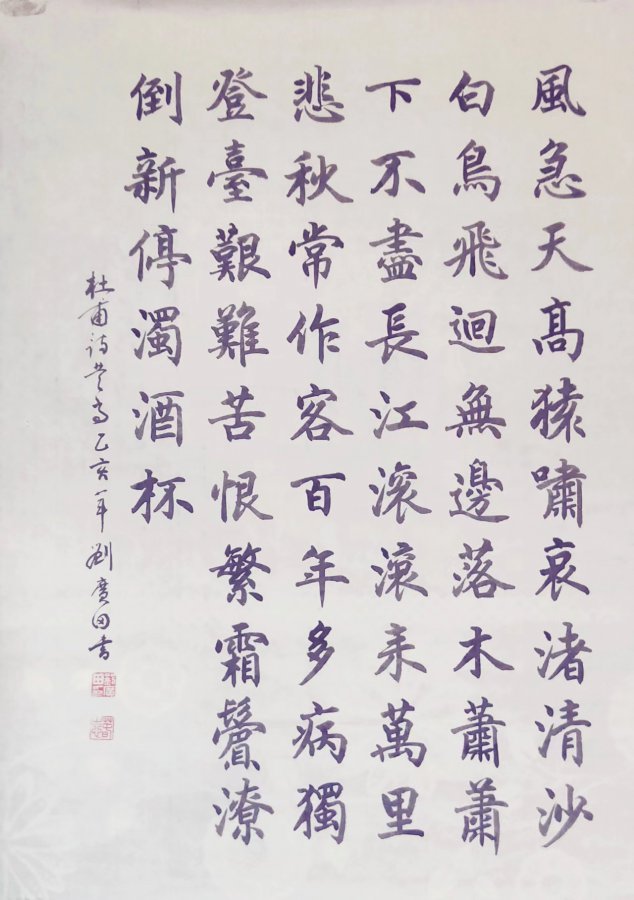 風急天髙猿嘯哀渚清沙
白鳥飛迴無邊落木蕭蕭
下不盡長江滾滾来萬里
悲秋常作客百年多病獨
登臺艱難苦恨繁霜鬢潦
倒新停濁酒杯
杜甫詩登高乙亥年劉廣田書